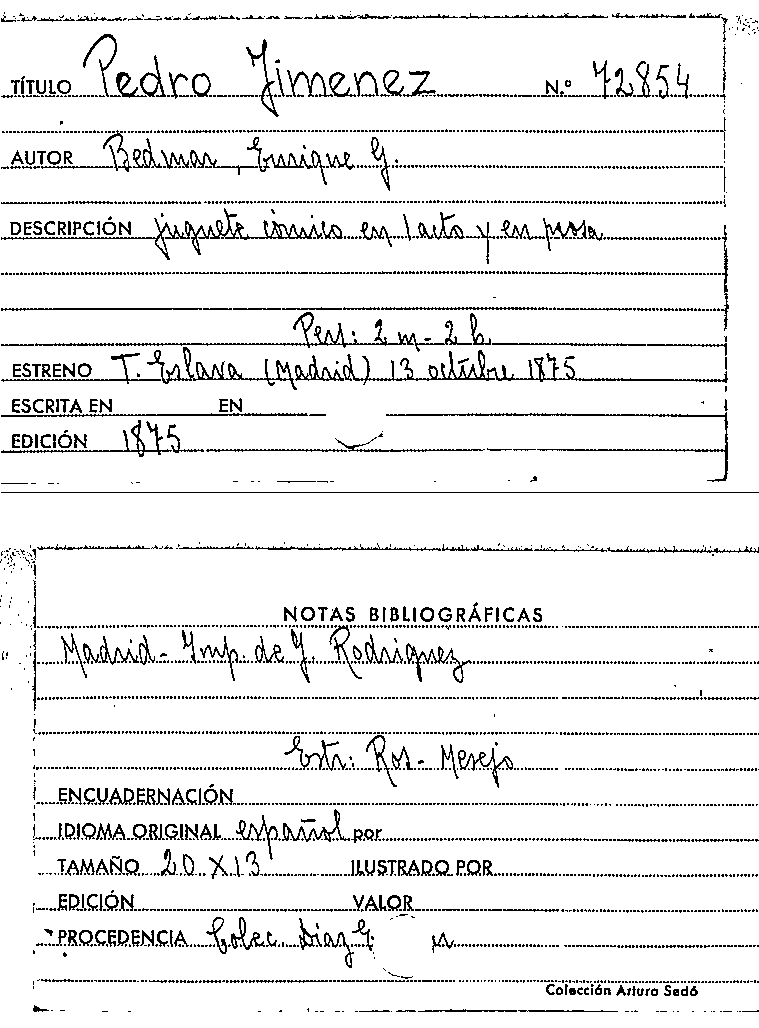 TÍTULO Pedro Jimenez N.º 72854
AUTOR Bedmar, Enrique G.
DESCRIPCIÓN juguete cómico en 1 acto y en prosa
Pers: 2 m - 2 h.
ESTRENO T. Eslava (Madrid) 13 octubre 1875
ESCRITA EN EN
EDICIÓN 1875
NOTAS BIBLIOGRÁFICAS
Madrid - Imp. de J. Rodriguez
Estr: Ros - Mesejo
ENCUADERNACIÓN
IDIOMA ORIGINAL español por
TAMAÑO 20 X 13 ILUSTRADO POR
EDICIÓN VALOR
PROCEDENCIA Colec. Díaz
Colección Arturo Sedó